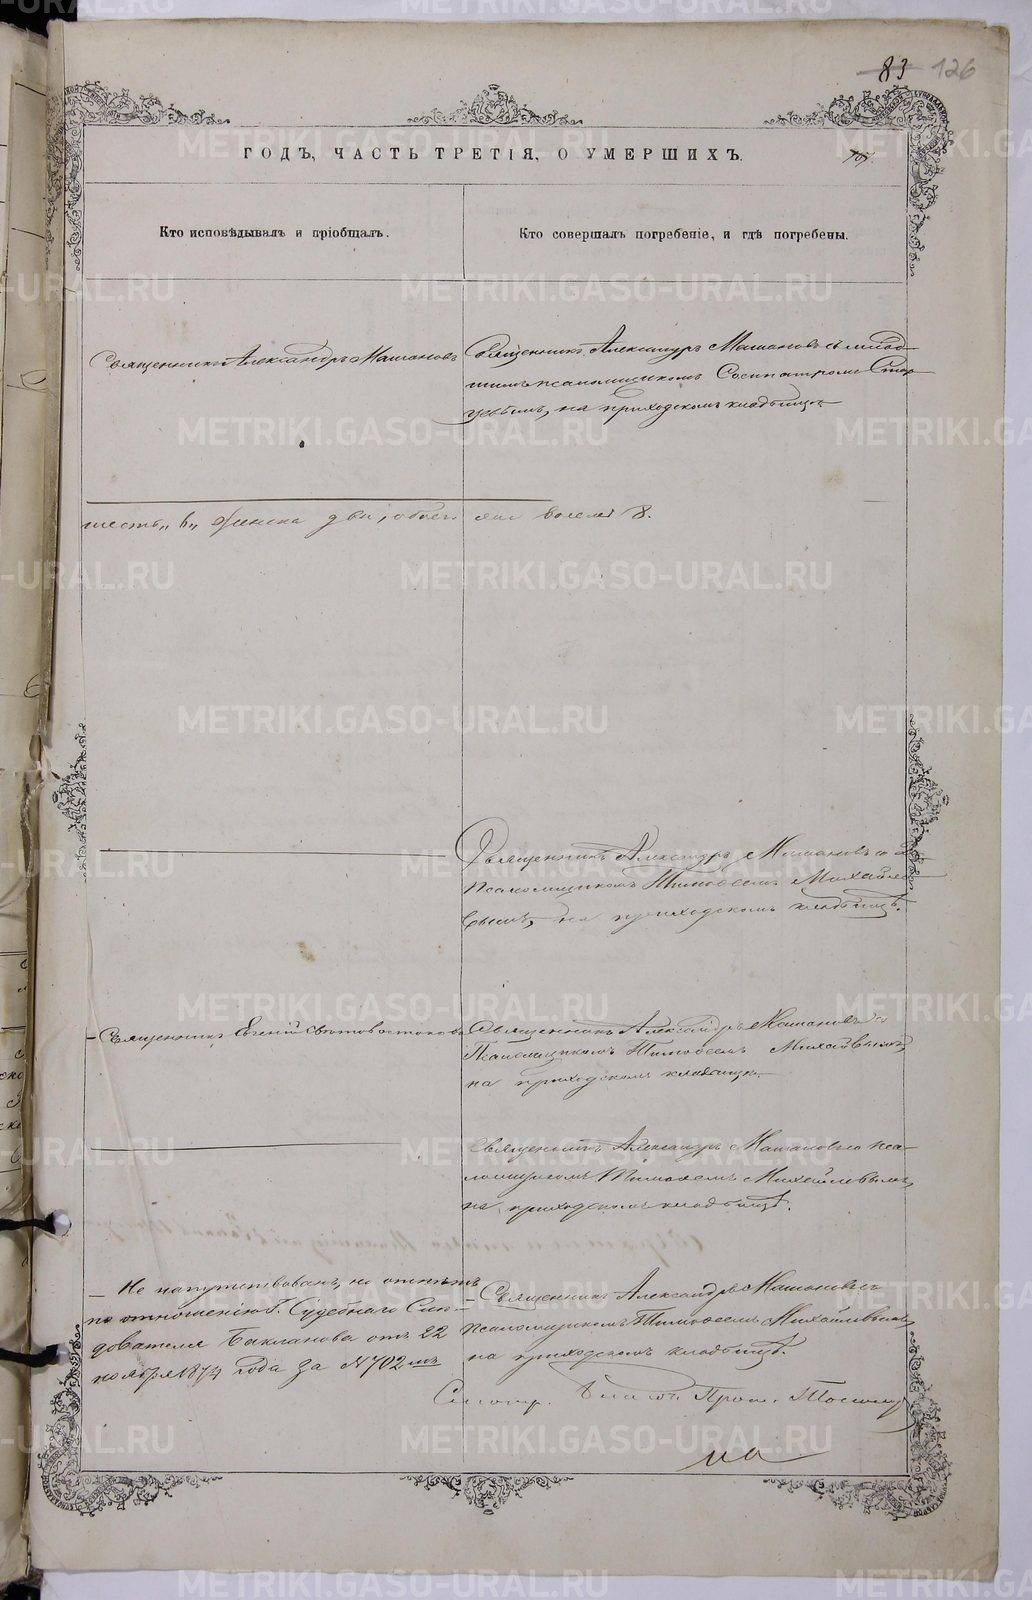 83 126
ГОДЪ, ЧАСТЬ ТРЕТІЯ, О УМЕРШИХЪ.
Кто исповѣдывалъ и пріобщалъ.
Кто совершалъ погребеніе, и гдѣ погребены.
Священникъ Александръ Машановъ
Священникъ Александръ Машановъ съ млад-
шимъ псаломщикомъ Сосипатромъ
на приходскомъ кладбищѣ
шесть „6„ женска два, обоего
восемь 8.
Священникъ Александръ Машановъ съ
Псаломщикомъ Тимоѳеемъ Михайле-
вымъ, на приходскомъ кладбищѣ.
Священникъ Евгеній Свѣтовостоковъ
Священникъ Александръ Машановъ съ
Псаломщикомъ Тимоѳеемъ
на приходскомъ кладбищѣ.
Священникъ Александръ Машановъ съ пса-
ломщикомъ Тимоѳеемъ Михайлевымъ,
на приходскомъ кладбищѣ.
Не напутствованъ, но отпѣтъ
по отношенію Г. Судебнаго Слѣ-
дователя Бакланова отъ 22
ноября 1874 года за № 702мъ
Священникъ Александръ Машановъ съ
псаломщикомъ Тимоѳеемъ Михайлевымъ,
на приходскомъ кладбищѣ.
METRIKI.GASO-URAL.RU